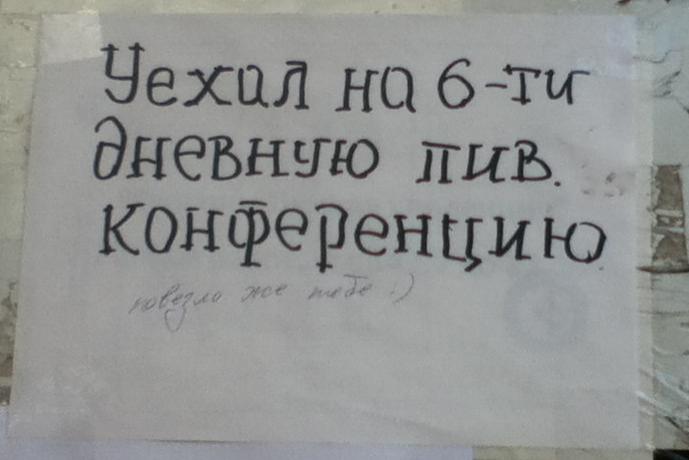 Уехал на 6-ти
дневную пив.
конференцию
повезло же тебе :)